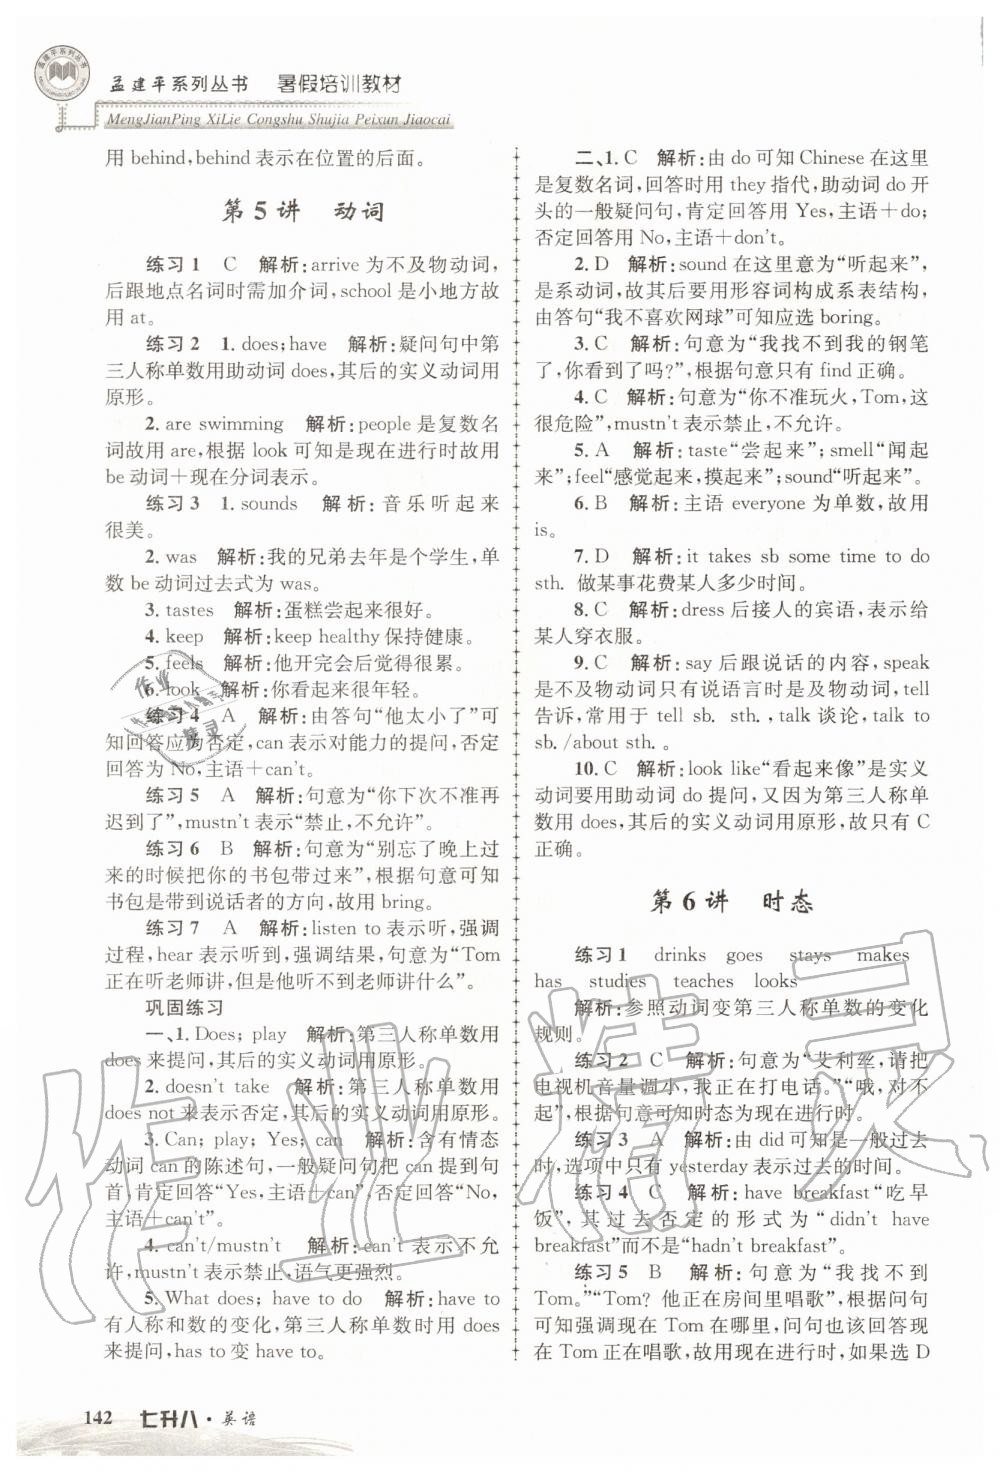 孟建平系列丛书
孟建平系列丛书 暑假培训教材
MengJianPing XiLie Congshu Shujia Peixun Jiaocai
用 behind,behind 表示在位置的后面。
第 5 讲 动词
练习 1 C 解析:arrive 为不及物动词,
后跟地点名词时需加介词,school 是小地方故
用 at。
练习 2 1. does;have 解析:疑问句中第
三人称单数用助动词 does,其后的实义动词用
原形。
2. are swimming 解析:people 是复数名
词故用 are,根据 look 可知是现在进行时故用
be 动词+现在分词表示。
练习 3 1. sounds 解析:音乐听起来
很美。
2. was 解析:我的兄弟去年是个学生,单
数 be 动词过去式为 was。
3. tastes 解析:蛋糕尝起来很好。
4. keep 解析:keep healthy 保持健康。
5. feels 解析:他开完会后觉得很累。
6. look 解析:你看起来很年轻。
练习 4 A 解析:由答句“他太小了”可
知回答应为否定,can 表示对能力的提问,否定
回答为 No,主语+can't。
练习 5 A 解析:句意为“你下次不准再
迟到了”,mustn't 表示“禁止,不允许”。
练习 6 B 解析:句意为“别忘了晚上过
来的时候把你的书包带过来”,根据句意可知
书包是带到说话者的方向,故用 bring。
练习 7 A 解析:listen to 表示听,强调
过程,hear 表示听到,强调结果,句意为“Tom
正在听老师讲,但是他听不到老师讲什么”。
巩固练习
一、1. Does; play 解析:第三人称单数用
does 来提问,其后的实义动词用原形。
2. doesn't take 解析:第三人称单数用
does not 来表示否定,其后的实义动词用原形。
3. Can; play; Yes; can 解析:含有情态
动词 can 的陈述句,一般疑问句把 can 提到句
首,肯定回答“Yes,主语+can”,否定回答“No,
主语+can't”。
4. can't/mustn't 解析:can't 表示不允
许,mustn't 表示禁止,语气更强烈。
5. What does; have to do 解析:have to
有人称和数的变化,第三人称单数时用 does
来提问,has to 变 have to。
二、1. C 解析:由 do 可知 Chinese 在这里
是复数名词,回答时用 they 指代,助动词 do 开
头的一般疑问句,肯定回答用 Yes,主语+do;
否定回答用 No,主语+don't。
2. D 解析:sound 在这里意为“听起来”,
是系动词,故其后要用形容词构成系表结构,
由答句“我不喜欢网球”可知应选 boring。
3. C 解析:句意为“我找不到我的钢笔
了,你看到了吗?”,根据句意只有 find 正确。
4. C 解析:句意为“你不准玩火,Tom,这
很危险”,mustn't 表示禁止,不允许。
5. A 解析:taste“尝起来”;smell“闻起
来”;feel“感觉起来,摸起来”;sound“听起来”。
6. B 解析:主语 everyone 为单数,故用
is。
7. D 解析:it takes sb some time to do
sth. 做某事花费某人多少时间。
8. C 解析:dress 后接人的宾语,表示给
某人穿衣服。
9. C 解析:say 后跟说话的内容,speak
是不及物动词只有说语言时是及物动词,tell
告诉,常用于 tell sb. sth. ,talk 谈论,talk to
sb. /about sth. 。
10. C 解析:look like“看起来像”是实义
动词要用助动词 do 提问,又因为第三人称单
数用 does,其后的实义动词用原形,故只有 C
正确。
第 6 讲 时态
练习 1 drinks goes stays makes
has studies teaches looks
解析:参照动词变第三人称单数的变化
规则。
练习 2 C 解析:句意为“艾利丝,请把
电视机音量调小,我正在打电话。”“哦,对不
起”,根据句意可知时态为现在进行时。
练习 3 A 解析:由 did 可知是一般过去
时,选项中只有 yesterday 表示过去的时间。
练习 4 C 解析:have breakfast“吃早
饭”,其过去否定的形式为“didn't have
breakfast”而不是“hadn't breakfast”。
练习 5 B 解析:句意为“我找不到
Tom。”“Tom? 他正在房间里唱歌”,根据问句
可知强调现在 Tom 在哪里,问句也该回答现在
Tom 正在唱歌,故用现在进行时,如果选 D
142 七升八·英语
作业精灵